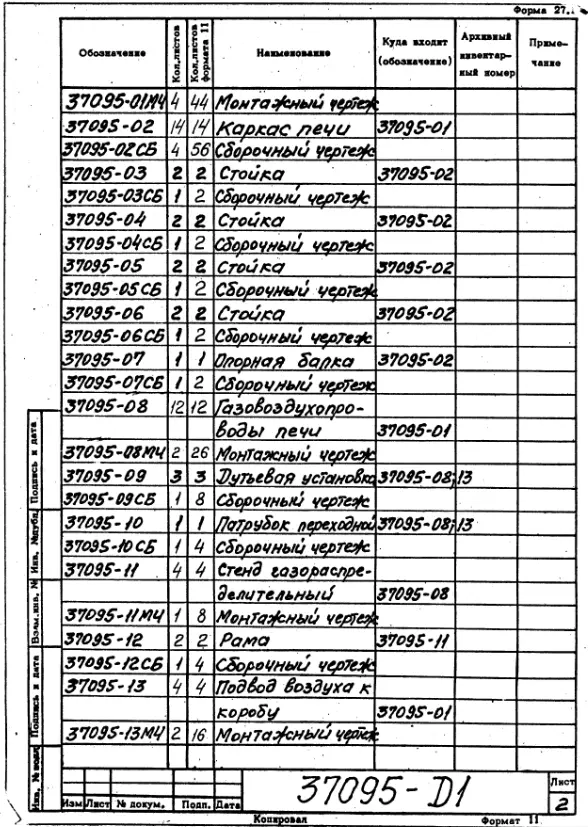 Форма 27.
Обозначение Кол. листов Кол. листов формата 11 Наименование Куда входит (обозначение) Архивный инвентар-ный номер Приме-чание
37095-01МЧ 4 44 Монтажный чертеж
37095-02 14 14 Каркас печи 37095-01
37095-02СБ 4 56 Сборочный чертеж
37095-03 2 2 Стойка 37095-02
37095-03СБ 1 2 Сборочный чертеж
37095-04 2 2 Стойка 37095-02
37095-04СБ 1 2 Сборочный чертеж
37095-05 2 2 Стойка 37095-02
37095-05СБ 1 2 Сборочный чертеж
37095-06 2 2 Стойка 37095-02
37095-06СБ 1 2 Сборочный чертеж
37095-07 1 1 Опорная балка 37095-02
37095-07СБ 1 2 Сборочный чертеж
37095-08 12 12 Газовоздухопро-
воды печи 37095-01
37095-08МЧ 2 26 Монтажный чертеж
37095-09 3 3 Дутьевая установка 37095-08;13
37095-09СБ 1 8 Сборочный чертеж
37095-10 1 1 Патрубок переходной 37095-08;13
37095-10СБ 1 4 Сборочный чертеж
37095-11 4 4 Стенд газораспре-
делительный 37095-08
37095-11МЧ 1 8 Монтажный чертеж
37095-12 2 2 Рама 37095-11
37095-12СБ 1 4 Сборочный чертеж
37095-13 4 4 Подвод воздуха к
коробу 37095-01
37095-13МЧ 2 16 Монтажный чертеж
Подпись и дата
Инв. №дубл.
Взам.инв. №
Подпись и дата
Инв. № подл.
Изм Лист № докум. Подп. Дата
37095-D1
Лист
2
Копировал Формат 11